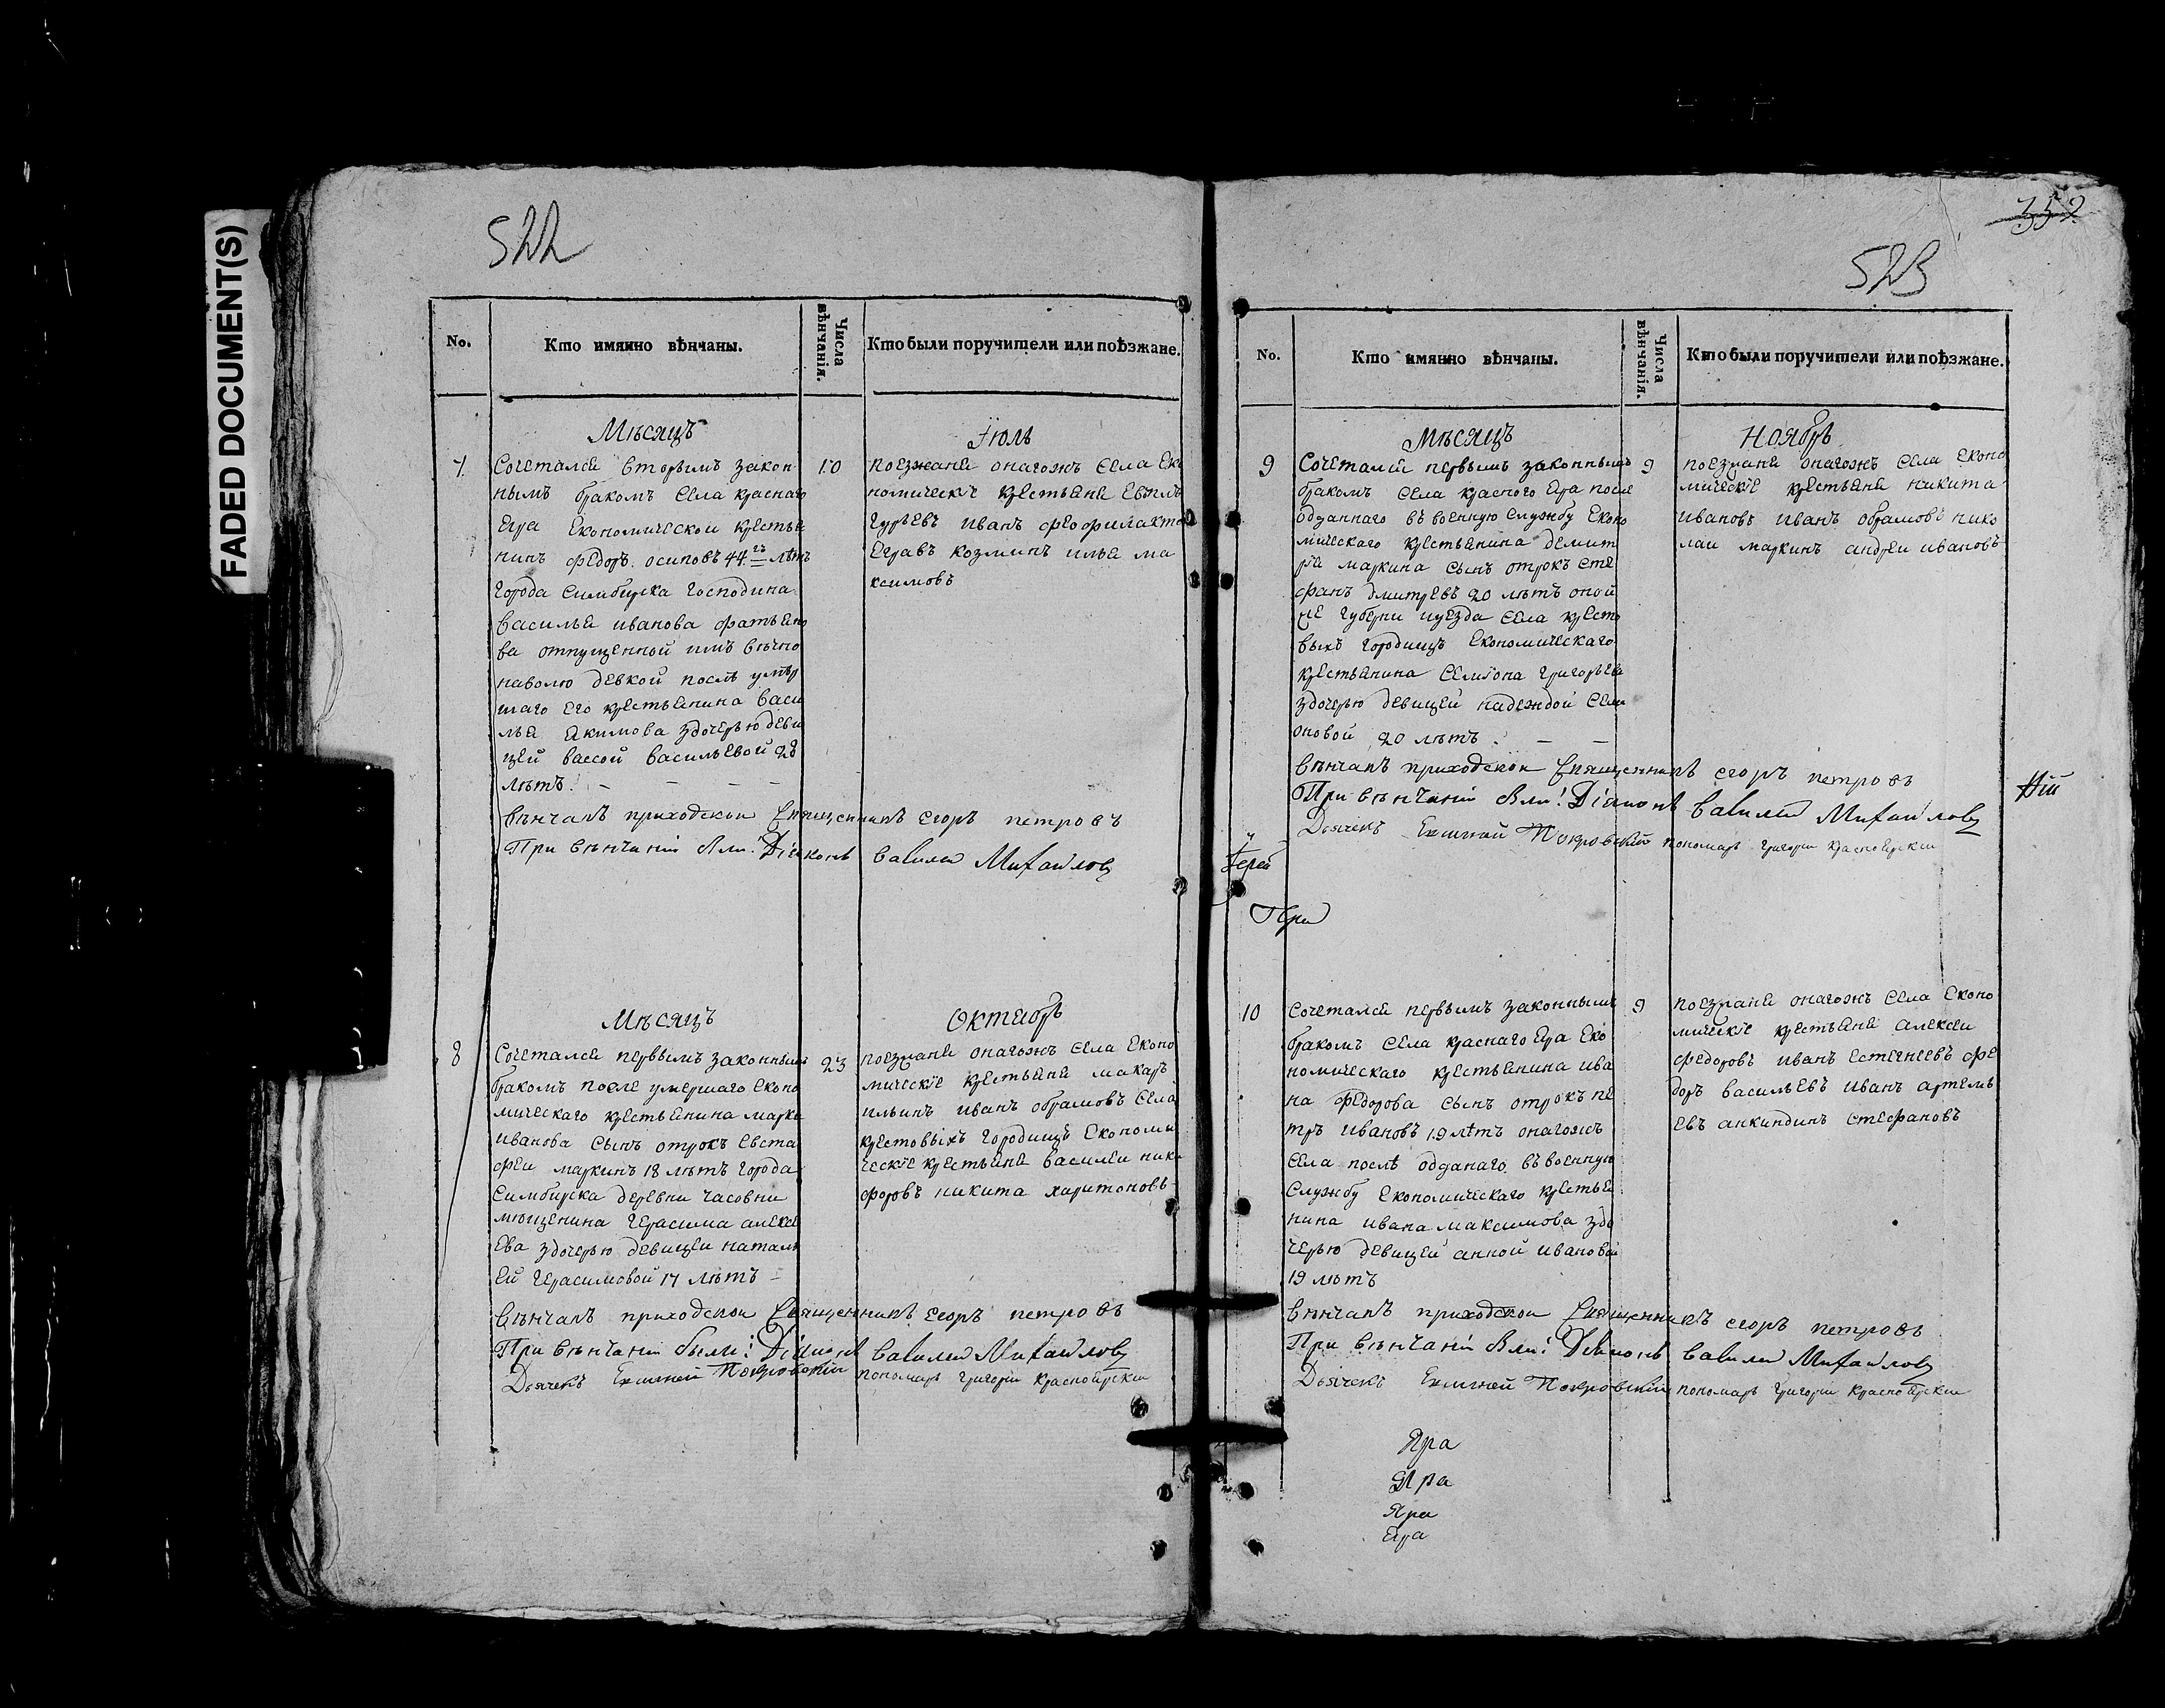 FADED DOCUMENT(S)
522
No.
Кто имянно вѣнчаны.
Числа вѣнчанія.
Кто были поручители или поѣзжане.
Мѣсяцъ
Іюль
7
Сочетался вторымъ закон
нымъ бракомъ села краснаго
Яра Екокомической крестья
нинъ Федоръ осиповъ 44.гъ лѣтъ
города Симбирска Господина
василья иванова фатьяно
ва отпущенной имъ вѣчно
наволю девкой послѣ умѣр
шаго его крестьянина васи
лья Якимова здочерью деви
цей вассой васильевой 28
лѣтъ. – – – –
10
поезжаня онагожъ села Еко
номическіе крестьяня
гурьевъ иванъ феофилакто
козминъ илья ма
ксимовъ
вѣнчалъ приходскои Священникъ егоръ петровъ
При вѣнчаніи были: Діаконъ василеи Михаиловъ
Мѣсяцъ
Октябрь
8
Сочетался первымъ законнымъ
бракомъ после умершаго Еконо
мическаго крестьянина марка
иванова сынъ отрокъ Евста
феи маркинъ 18 лѣтъ города
Симбирска деревни часовни
мющенина герасима алексе
ева здочерью девицеи наталь
ей герасимовой 17 лѣтъ –
23
поезжаня онагожъ села Еконо
мическіе крестьяня макаръ
ильинъ иванъ обрамовъ села
крестовыхъ городищъ Економи
ческіе крестьяня василеи ники
форовъ никита харитоновъ
вѣнчалъ приходскои Священникъ егоръ петровъ
При вѣнчаніи были: Діаконъ василеи Михаиловъ
Дьячекъ Евгиней Покровскіи пономарь григореи красноярскіи
352
523
No.
Кто имянно вѣнчаны.
Числа вѣнчанія.
Кто были поручители или поѣзжане.
Мѣсяцъ
Ноябрь
9
Сочетался первымъ законнымъ
бракомъ села красного Яра после
одданнаго въ военную службу Еконо
мическаго крестьянина демит
рія маркина сынъ отрокъ сте
фанъ дмитревъ 20 лѣтъ оной
же губерни иуезда села кресто
выхъ городищъ Екокомическаго
крестьянина семіона григорьева
здочерью девицей надеждой семи
оновой 20 лѣтъ. – –
9
поезжаня онагожъ села Еконо
мическіе крестьяня никита
ивановъ иванъ обрамовъ нико
лаи маркинъ андреи ивановъ
вѣнчалъ приходскои Священникъ егоръ петровъ
При вѣнчаніи были: Діаконъ василеи Михаиловъ
Дьячекъ Евгиней Покровскіи пономарь григореи красноярскіи
Іерей
При
10
Сочетался первымъ законнымъ
бракомъ села краснаго Яра Еко
номическаго крестьянина ива
на Федорова сынъ отрокъ пе
тръ ивановъ 19 лѣтъ онагожъ
села послѣ одданаго въ военную
службу Екокомическаго крестья
нина ивана максимова здо
черью девицей анной ивановой
19 лѣтъ
9
поезжаня онагожъ села Еконо
мическіе крестьяня алексеи
федоровъ иванъ Естегнеевъ фе
доръ васильевъ иванъ артемь
евъ анкиндинъ стефановъ
вѣнчалъ приходскои Священникъ егоръ петровъ
При вѣнчаніи были: Діаконъ василеи Михаиловъ
Дьячекъ Евгиней Покровскіи пономарь григореи красноярскіи
Яра
Яра
Яра
Яра